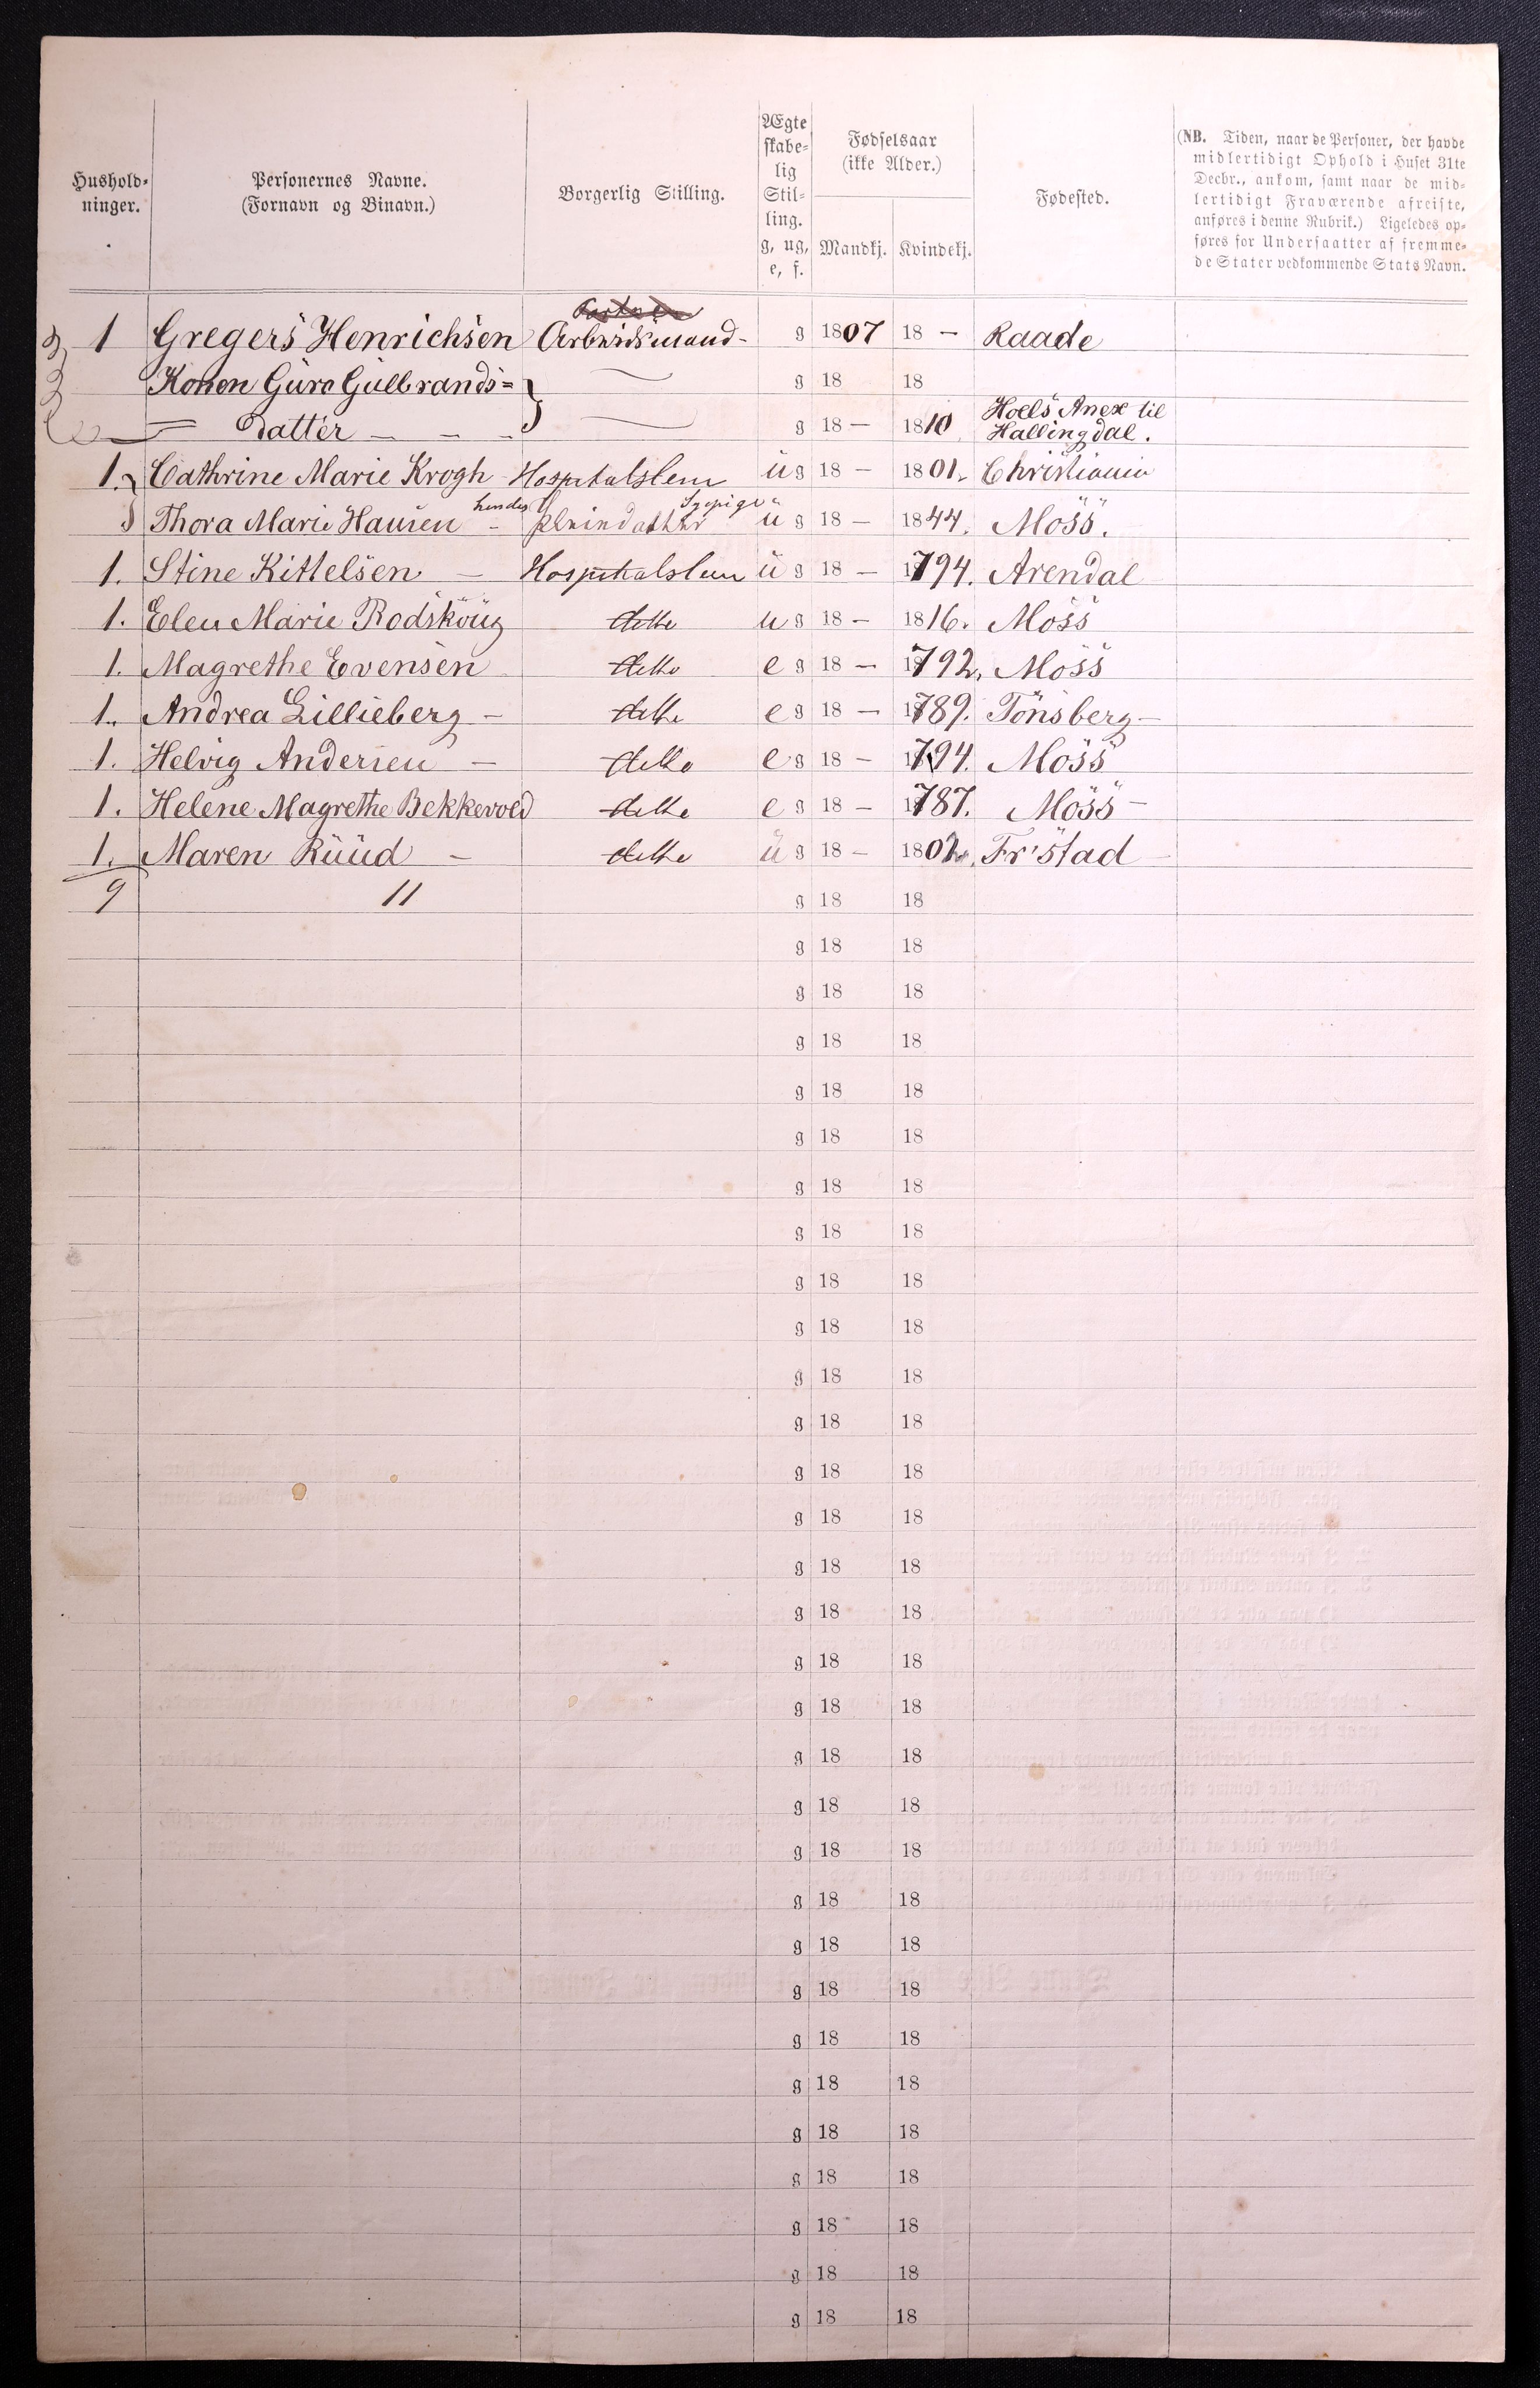 Hushold-
ninger.
Personernes Navne.
(Fornavn og Binavn.)
Borgerlig Stilling.
Ægte
skabe-
lig
Stil-
ling.
g, ug,
e, f.
Fødselsaar
(ikke Alder.)
Mandkj. Kvindekj.
Fødested.
(NB. Tiden, naar de Personer, der havde
midlertidigt Ophold i Huset 31te
Decbr., ankom, samt naar de mid-
lertidigt Fraværende afreiste,
anføres i denne Rubrik.) Ligeledes op-
føres for Undersaatter af fremme-
de Stater vedkommende Stats Navn.
1 Gregers Henrichsen Arbeidsmand - g 1807 18 — Raade
Konen Guro Gulbrands= g 18 18
Datter — — - g 18 — 1810 Hoels Anex til
Hallingdal.
1. Cathrine Marie Krogh Hospitalslem ug 18 — 1801. Christiania
hendes Sypige
Thora Marie Hansen - Pleiedatter ug 18 — 1844. Moss.
1. Stine Kittelsen — Hospitalslem ug 18 — 1794. Arendal
1. Elen Marie Rodskoug ditto ug 18 — 1816. Moss
1. Magrethe Evensen ditto e g 18 — 1792. Moss
1. Andrea Lillieberg — ditto e g 18 — 1789. Tönsberg —
1. Helvig Andersen — ditto e g 18 — 1794. Moss
1. Helene Magrethe Bekkevold ditto e g 18 — 1787. Moss —
1. Maren Ruud — ditto ug 18 — 1802. Fr'stad —
9 11 g 18 18
g 18 18
g 18 18
g 18 18
g 18 18
g 18 18
g 18 18
g 18 18
g 18 18
g 18 18
g 18 18
g 18 18
g 18 18
g 18 18
g 18 18
g 18 18
g 18 18
g 18 18
g 18 18
g 18 18
g 18 18
g 18 18
g 18 18
g 18 18
g 18 18
g 18 18
g 18 18
g 18 18
g 18 18
g 18 18
g 18 18